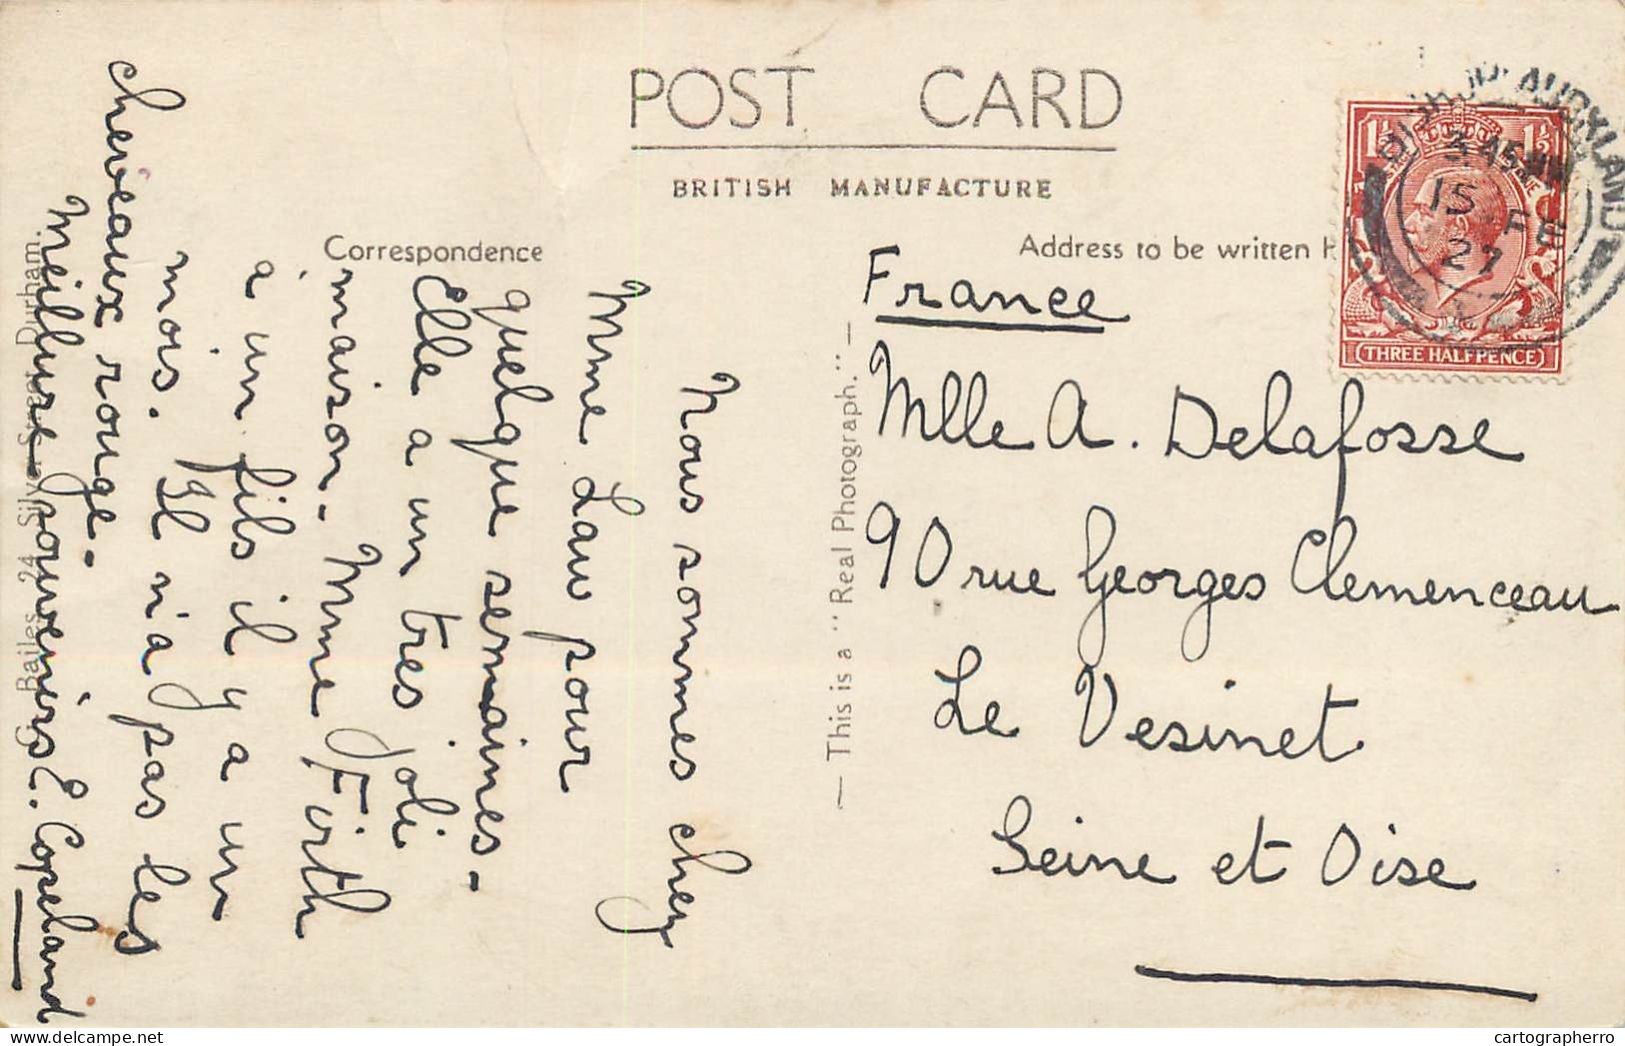 POST CARD
BRITISH MANUFACTURE
Correspondence
Address to be written
Nous sommes chez
Mme Law pour
quelque semaines-
Elle a un tres joli
maison- Mme Firth
a un fils il y a un
mois. Il n'a pas les
cheveaux rouge-
Meilleure souvenirs E. Copeland
Bailes 24 Silver Street Durham.
— This is a "Real Photograph." —
France
Mlle A. Delafosse
90 rue Georges Clemenceau
Le Vesinet
Seine et Oise
1½ 1½
THREE HALFPENCE
BISHOP AUCKLAND
3.45 PM
15 FE
27
cartographerro